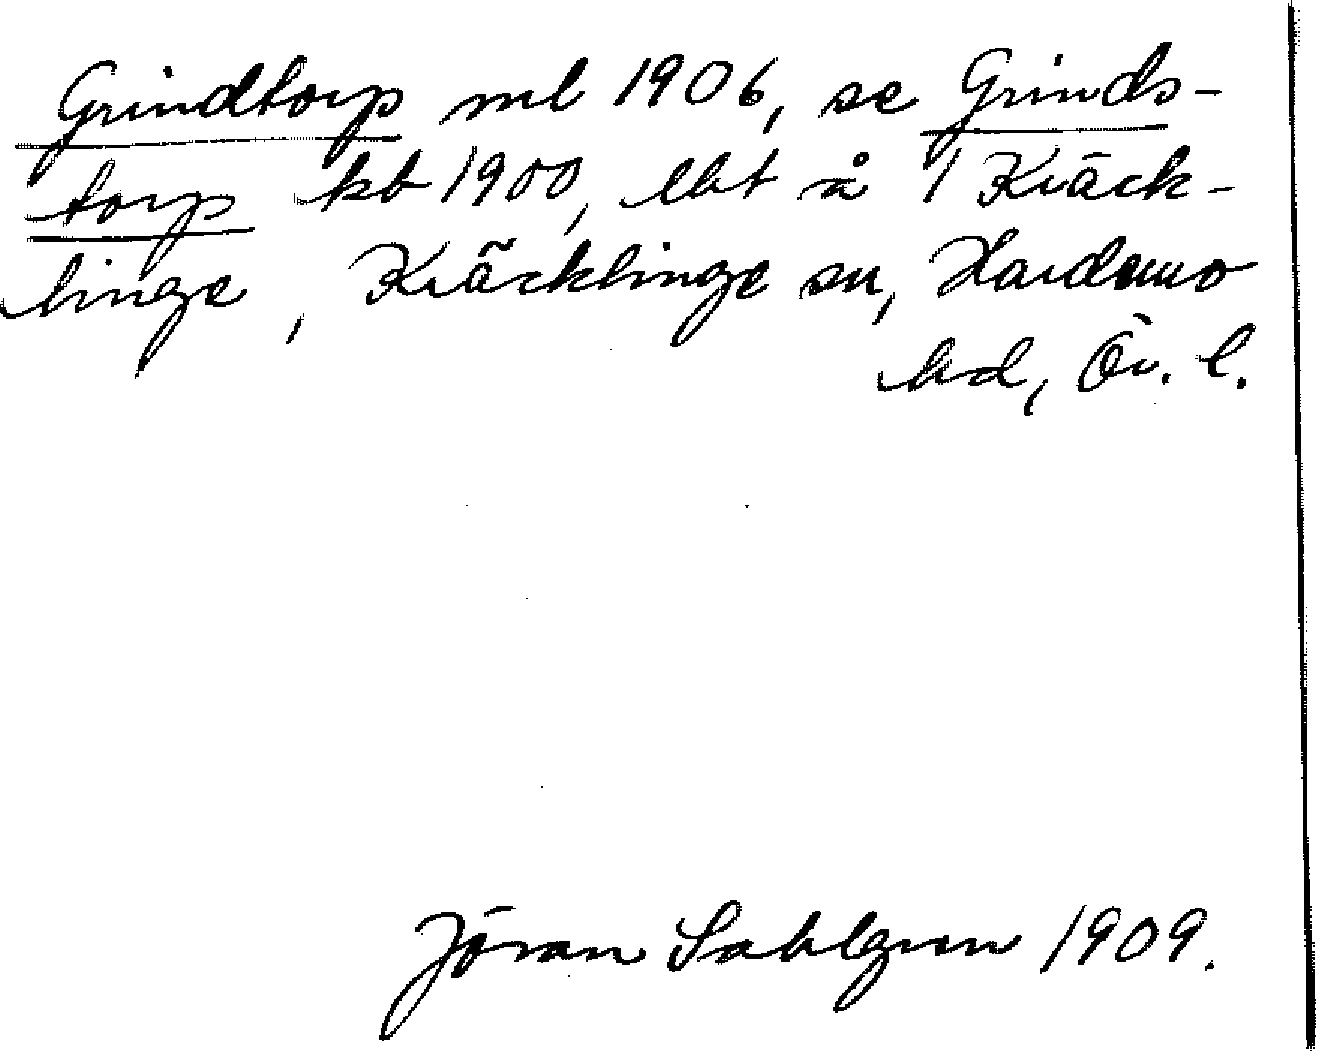 Grindtorp ml 1906, se Grinds-
torp kb 1900, lht å 1 Kräck-
linge, Kräcklinge sn, Hardemo
hd, Ör. l.
Jöran Sahlgren 1909.